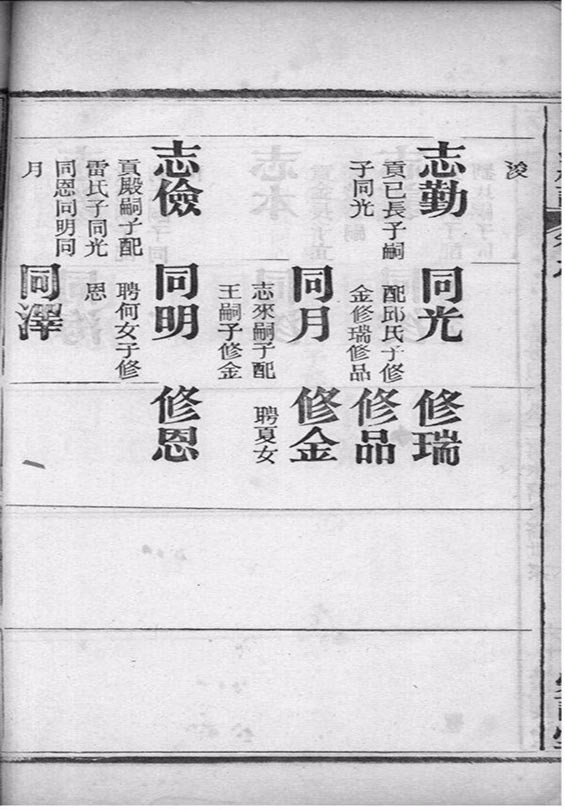 浚
志勤
貢已長子嗣
子同光
志儉
貢殿嗣子配
雷氏子同光
同恩同明同
月
同光
配邱氏子修
金修瑞修品
同月
志來嗣子配
王嗣子修金
同明
聘何女子修
恩
同澤
修瑞
修品
修金
聘夏女
修恩